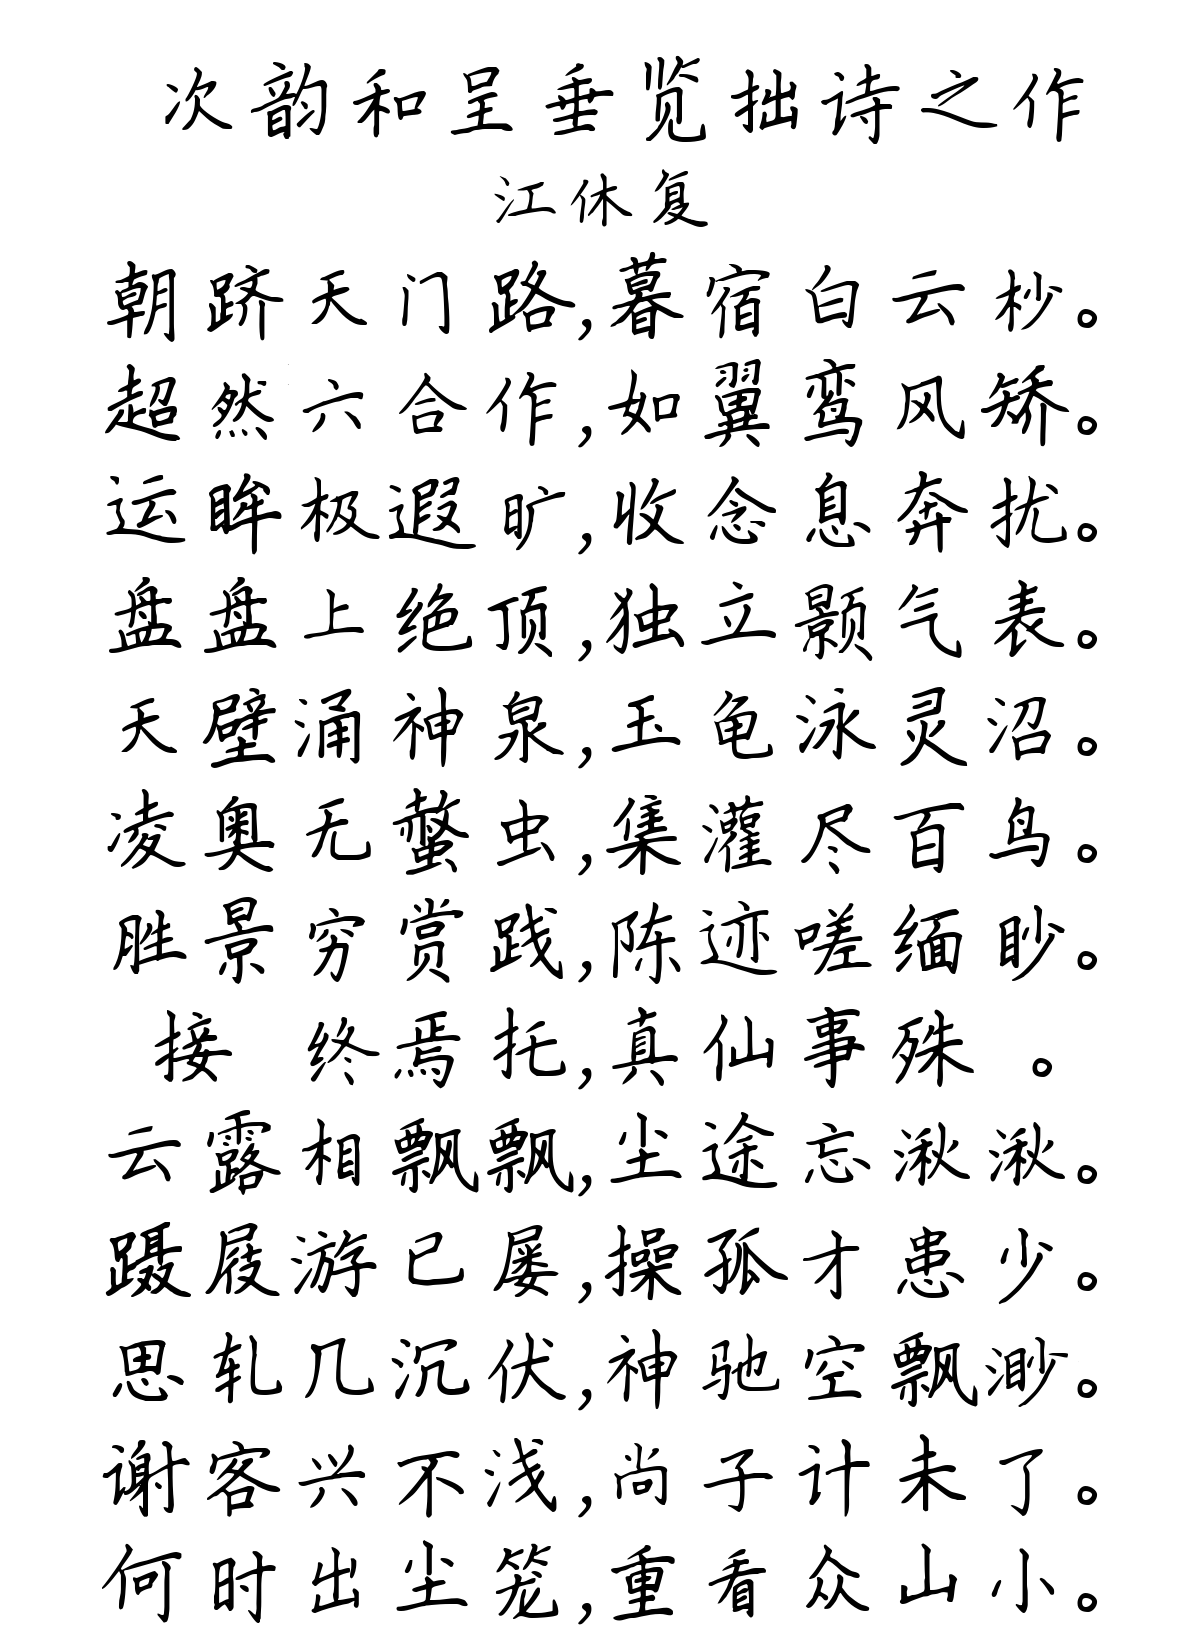 次韵和呈垂览拙诗之作
江休复
朝跻天门路,暮宿白云杪。
超然六合作,如翼鸾风矫。
运眸极遐旷,收念息奔扰。
盘盘上绝顶,独立颢气表。
天壁涌神泉,玉龟泳灵沼。
凌奥无螫虫,集灌尽百鸟。
胜景穷赏践,陈迹嗟缅眇。
接 终焉托,真仙事殊 。
云露相飘飘,尘途忘湫湫。
蹑屐游已屡,操孤才患少。
思轧几沉伏,神驰空飘渺。
谢客兴不浅,尚子计未了。
何时出尘笼,重看众山小。